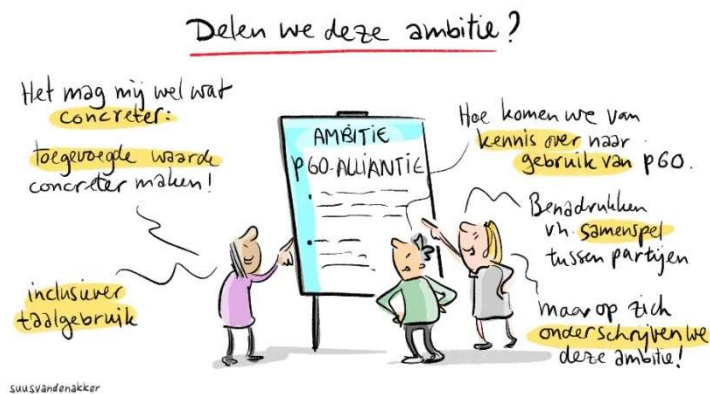 Delen we deze ambitie?
Het mag mij wel wat
concreter:
toegevoegde waarde
concreter maken!
inclusiever
taalgebruik
AMBITIE
PGO-ALLIANTIE
Hoe komen we van
kennis over naar
gebruik van PGO.
Benadrukken
vh. samenspel
tussen partijen
maar op zich
onderschrijven we
deze ambitie!
suusvandenakker